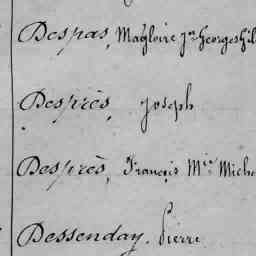 Despas, Magloire Jn Georges Gil
Desprès, Joseph
Desprès, François Mie Miche
Dessenday. Pierre